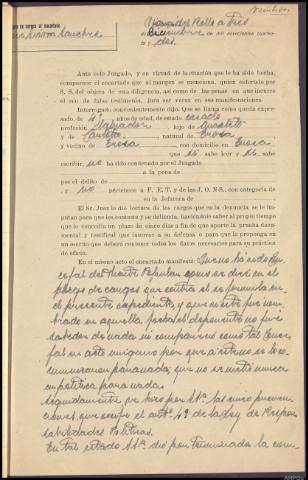 ura de cargos al encartado
a Diez
Diciembre de mil novecientos cuaren-
ta y dos.
Ante este Juzgado, y en virtud de la citación que le ha sido hecha,
comparece el encartado que al margen se menciona, quien enterado por
S. S. del objeto de esta diligencia, así como de las penas en que incurre
el reo de falso testimonio, jura ser veraz en sus manifestaciones.
Interrogado convenientemente dijo: Que se llama como queda expre-
sado, de años de edad, de estado casado
profesión labrador, hijo de
y de natural de
y vecino de con domicilio en
que sabe leer y sabe
escribir. no ha sido condenado por el Juzgado
a la pena de
por el delito de
y no pertenece a F. E. T. y de las J. O. N-S., con categoría de
en la Jefatura de
El Sr. Juez le dió lectura de los cargos que en la denuncia se le impu-
tan para que los contesta y se defienda, haciéndole saber al propio tiempo
que le concedía un plazo de cinco días a fin de que aporte la prueba docu-
mental y testifical que interese a su defensa o para que la proponga en
un escrito que deberá contener todos los datos necesarios para su práctica
de efecto.
En el mismo acto el encartado manifiesta: Que no ha sido Con-
cejal del Frente Popular como se dice en el
pliego de cargos que contra él se formula en
el presente expediente, y que si este fue nom-
brado en aquella fecha el deponente no fue
sabedor de nada ni compareció como tal Conce-
jal en acto ninguno por que a este no se le co-
municaron para nada, que no se metió nunca
en política para nada.
Seguidamente se hizo por S.Sª. las cinco preven-
ciones que recoge el artº 49 de la Ley de Respon-
sabilidades Políticas.
En tal estado S.Sª. dió por terminada la com-